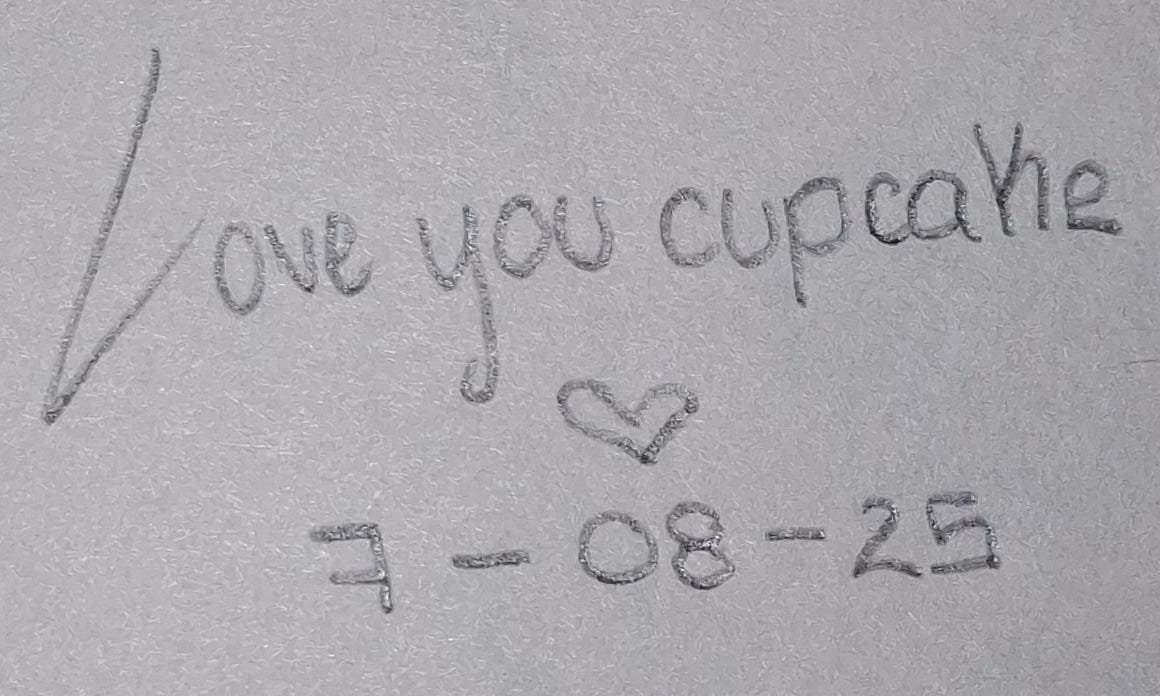 Love you cupcake
♡
7-08-25